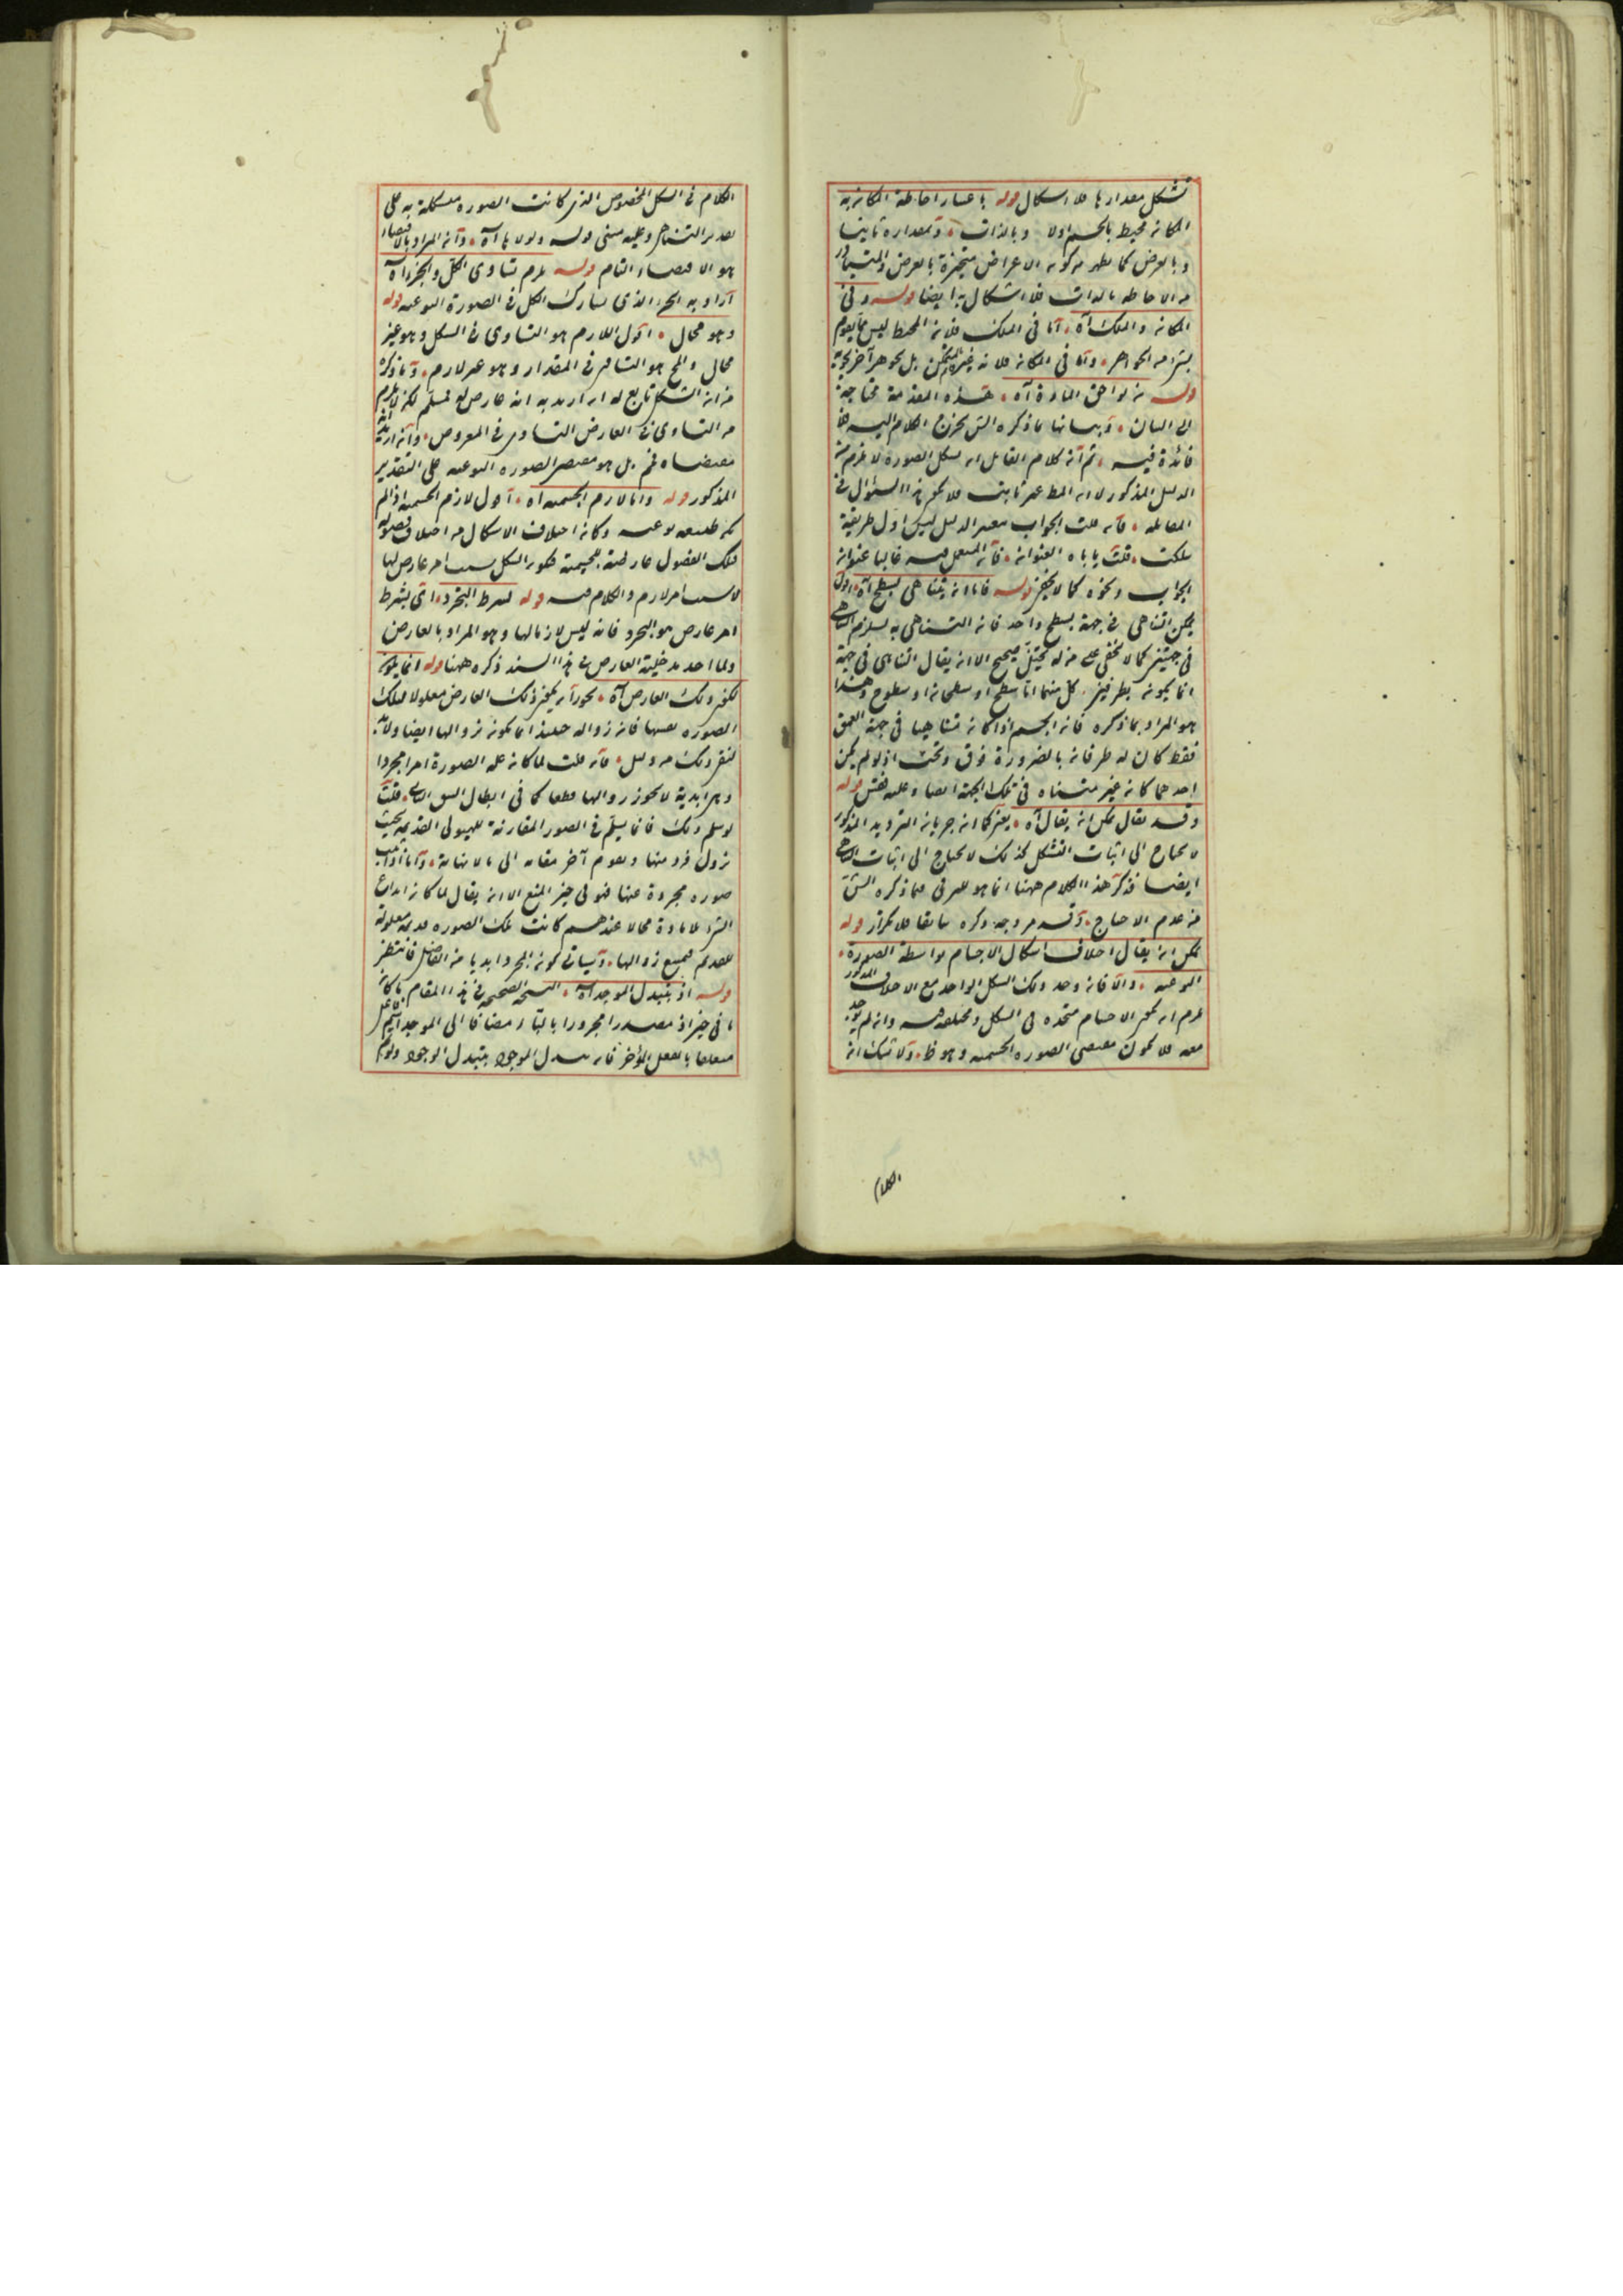 تشكل مقدارها فلا اشكال قوله باعتبار احاطة المكان به
المكان محيط بالجسم اولا وبالذات وبمقداره ثانيا
وبالعرض كما يظهر من كون الاعراض متحيزة بالعرض والمتبادر
من الاحاطة بالذات فلا اشكال به ايضا قوله وفى
المكان والملك آه اما فى الملك فلان المحيط ليس مما يقوم
بشئ من الجواهر واما فى المكان فلانه غير قائم بالمتمكن بل بجوهر آخر
قوله من لواحق المادة آه هذه المقدمة محتاجة
الى البيان وبيانها بما ذكره الش يخرج الكلام اليه فلا
فائدة فيه ثم ان كلام القائل ان بشكل الصورة لا يلزم من
الدليل المذكور لان المط غير ثابت فلا يكون هذا السؤال فى
المقابلة فان قلت الجواب بتغيير الدليل ليس اول طريقة
سلكت قلت ياباه العنوان فان المستعمل فيه غالبا عنوان
الجواب ونحوه كما لا يخفى قوله فاما ان يتناهى بسطح آه اقول
يمكن التناهى فى جهة بسطح واحد فان التناهى به يستلزم التناهى
فى جهتين كما لا يخفى على من له تخيل صحيح الا ان يقال التناهى فى جهة
انما يكون بطرفين كل منهما اما سطح او سطحان او سطوح وهذا
هو المراد بما ذكره فان الجسم اذا كان متناهيا فى جهة العمق
فقط كان له طرفان بالضرورة فوق وتحت اذ لو لم يكن
احدهما كان غير متناه فى تلك الجهة ايضا وعليه فقس قوله
وقد يقال يمكن ان يقال آه يعنى كما ان جريان الترديد المذكور
لا يحتاج الى اثبات التشكل كذلك لا يحتاج الى اثبات التناهى
ايضا فذكر هذا الكلام ههنا انما هو للترقى فيما ذكره الش
من عدم الاحتياج وقد مر وجه ذكره سابقا فلا تكرار قوله
يمكن ان يقال اختلاف اشكال الاجسام بواسطة الصورة
النوعية والا فان وجد ذلك الشكل الواحد مع الاختلاف المذكور
يلزم ان يكون الاجسام متحدة فى الشكل ومختلفة فيه وان لم يوجد
معه فلا يكون مقتضى الصورة الجسمية وهو ظ ولا شك ان
الكلام
الكلام فى الشكل المخصوص الذى كانت الصورة متشكلة به على
تقدير التناهى وعليه مبنى قوله ولولاها آه وان المراد بالاقتضاء
هو الاقتضاء التام قوله يلزم تساوى الكل والجزء آه
اراد به الجزء الذى يشارك الكل فى الصورة النوعية قوله
وهو محال اقول اللازم هو التساوى فى الشكل وهو غير
محال والمح هو التساوى فى المقدار وهو غير لازم وما ذكره
من ان الشكل تابع له ان اريد به انه عارض له فمسلم لكن لا يلزم
من التساوى فى العارض التساوى فى المعروض وان اريد انه
مقتضاه فمم بل هو مقتضى الصورة النوعية على التقدير
المذكور قوله واما لازم الجسمية آه اقول لازم الجسمية اذا لم
يكن طبيعة نوعية وكان اختلاف الاشكال من اختلاف فصوله
فتلك الفصول عارضة للجسمية فيكون الشكل بسبب امر عارض لها
لا بسبب امر لازم والكلام فيه قوله بشرط التجرد اى بشرط
امر عارض هو التجرد فانه ليس لازما لها وهو المراد بالعارض
ولما اخذ مدخلية العارض فى هذا السند ذكره ههنا قوله انما يلزم
لو كان ذلك العارض آه يجوز ان يكون ذلك العارض معلولا لتلك
الصورة بعينها فان زواله حينئذ انما يكون بزوالها ايضا ولا بد
لنفى ذلك من دليل فان قلت لما كان علة الصورة امرا مجردا
وهى ابدية لا يجوز زوالها قطعا كما فى ابطال الشق الثانى قلت
لو سلم ذلك فانما يسلم فى الصور المقارنة للهيولى القديمة بحيث
يزول فرد منها ويقوم آخر مقامه الى ما لا نهاية واما اذا كانت
صورة مجردة عنها فهو فى حيز المنع الا ان يقال لما كان ابداع
الشئ بلا مادة محالا عندهم كانت تلك الصورة قديمة معلولة
للقديم فيمتنع زوالها وسياتى كون المجرد ابديا من الفاضل فانتظر
قوله اذ بتبدل الموجد آه النسخة الصحيحة فى هذا المقام ما كان
ما فى حيز اذ مصدرا مجرورا بالباء مضافا الى الموجد اسم فاعل
متعلقا بالفعل المؤخر فان تبدل الموجود بتبدل الوجود